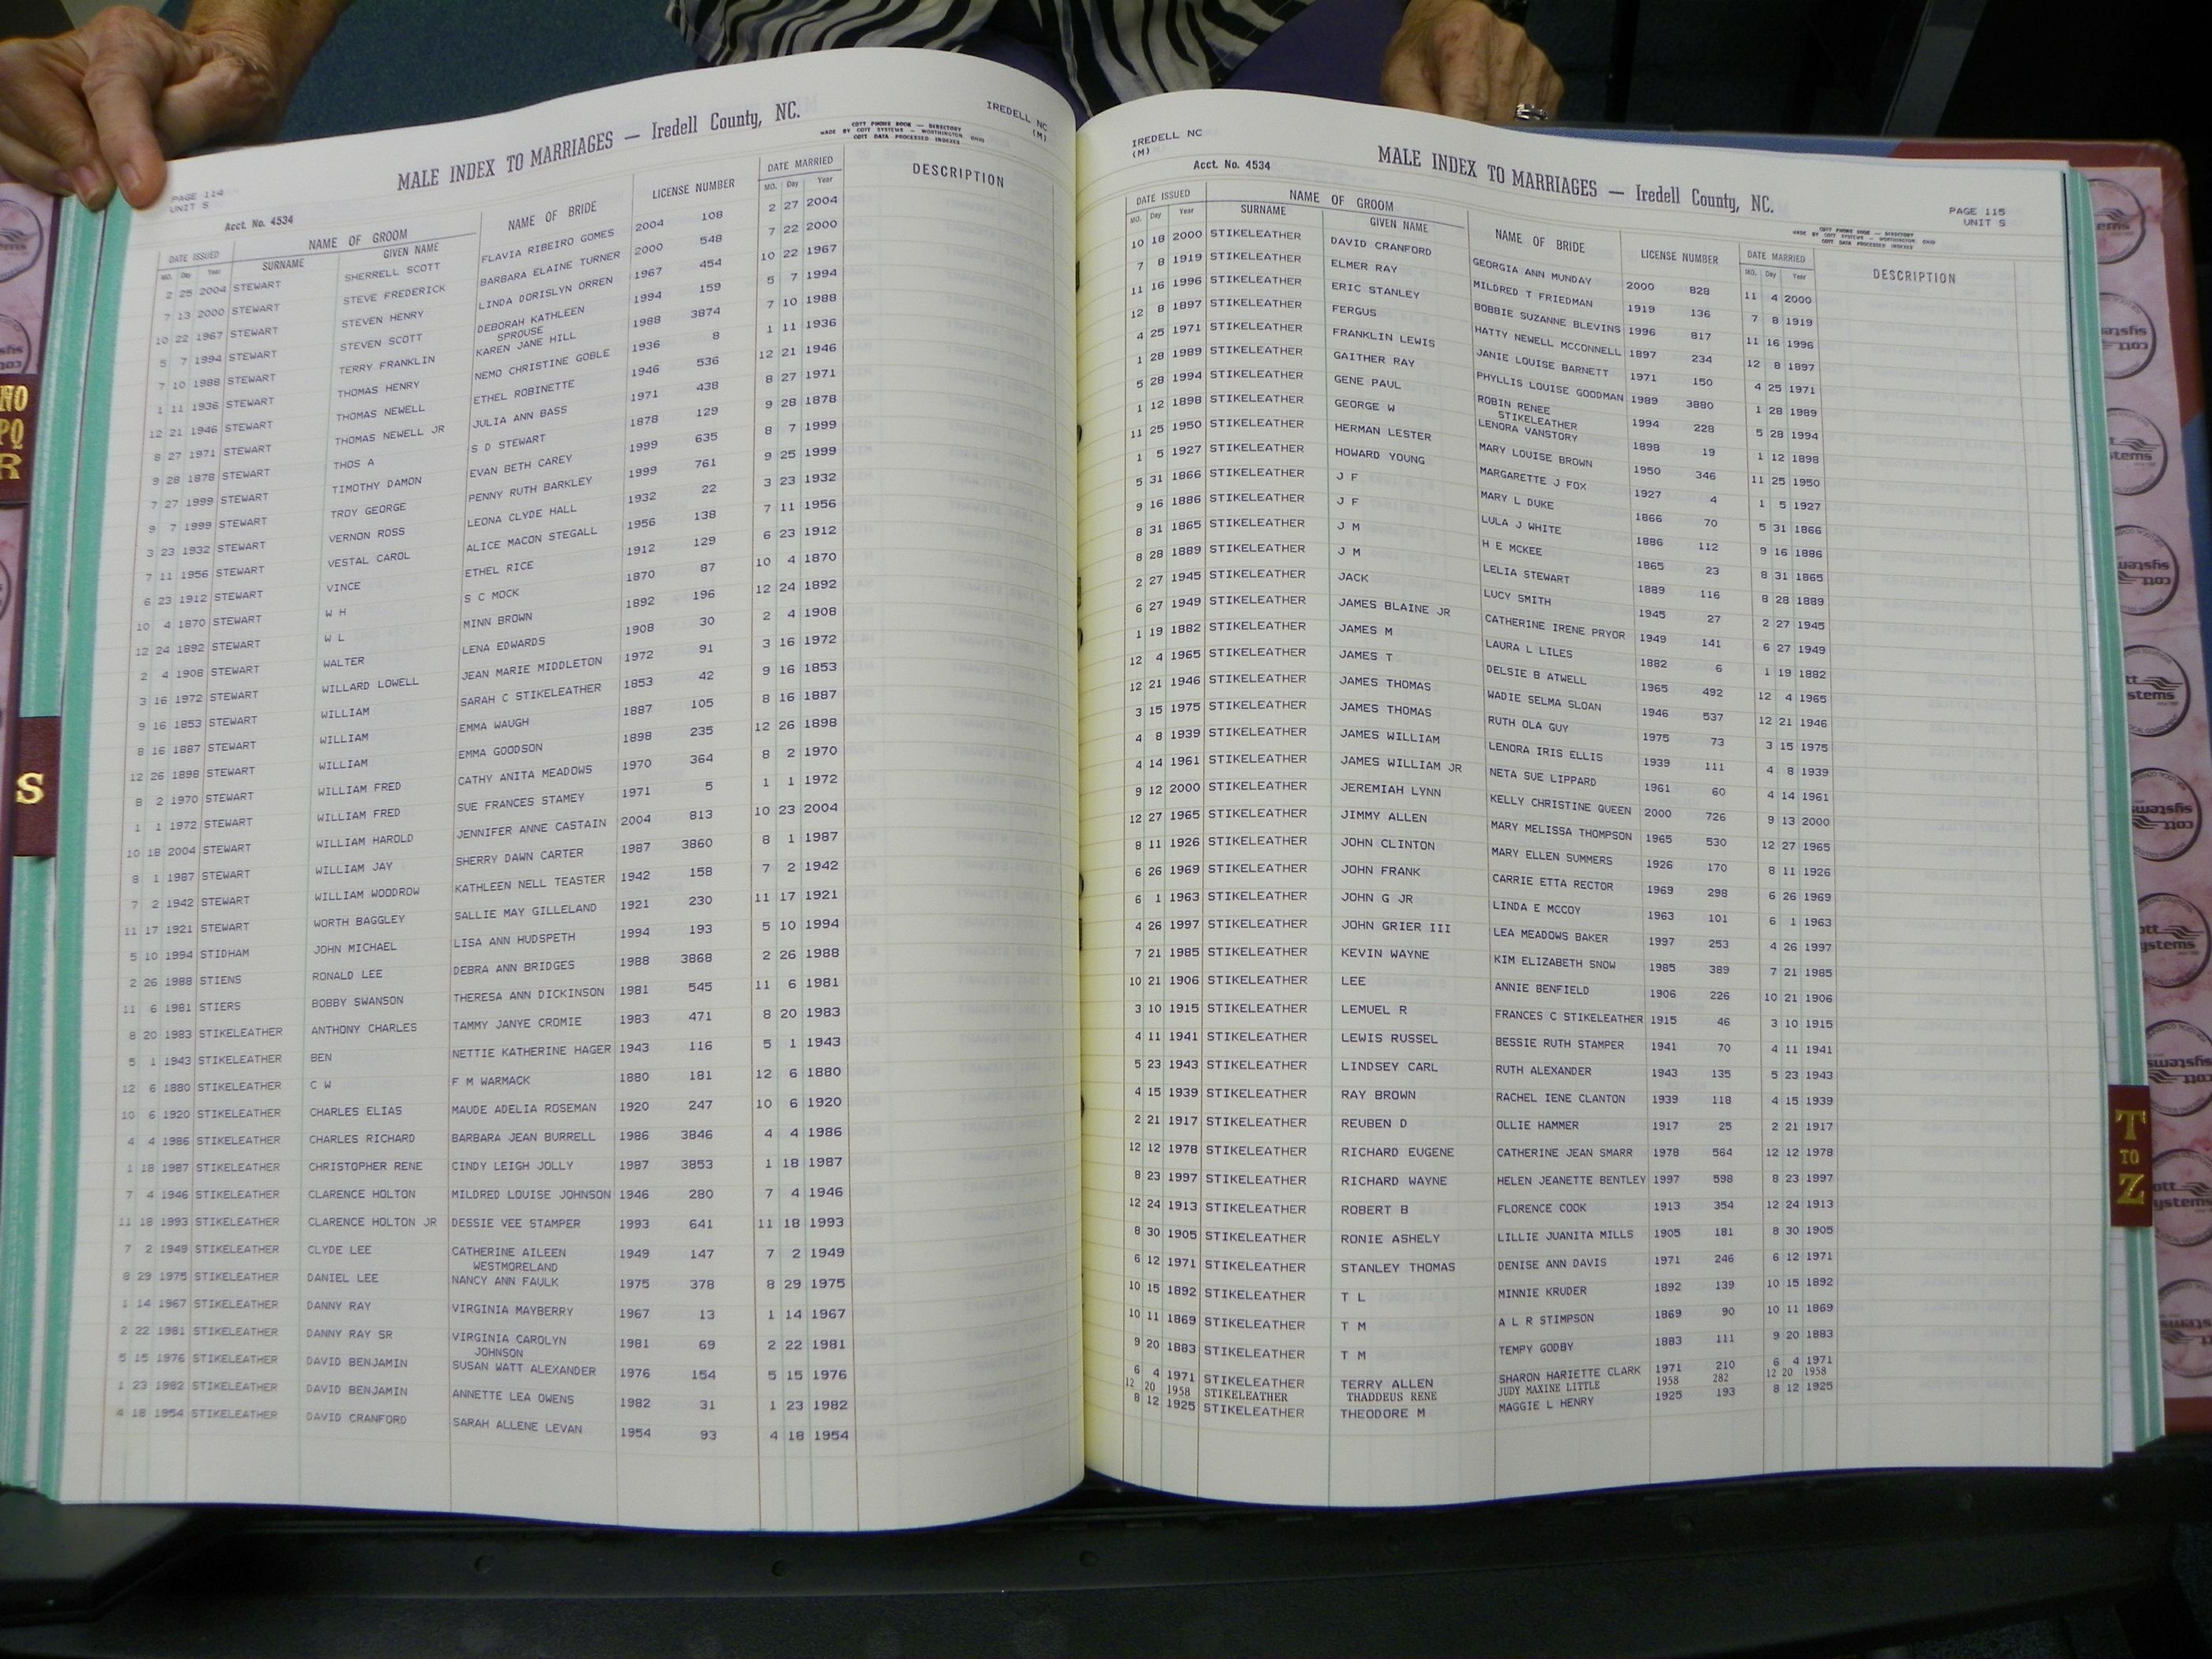 PAGE 114
UNIT S
MALE INDEX TO MARRIAGES — Iredell County, NC.
COTT PHONE BOOK — DIRECTORY
MADE BY COTT SYSTEMS — WORTHINGTON OHIO
COTT DATA PROCESSED INDEXES
IREDELL NC
(M)
Acct. No. 4534
DATE ISSUED NAME OF GROOM NAME OF BRIDE LICENSE NUMBER DATE MARRIED DESCRIPTION
MO. Day Year SURNAME GIVEN NAME MO. Day Year
2 25 2004 STEWART SHERRELL SCOTT FLAVIA RIBEIRO GOMES 2004 108 2 27 2004
7 13 2000 STEWART STEVE FREDERICK BARBARA ELAINE TURNER 2000 548 7 22 2000
10 22 1967 STEWART STEVEN HENRY LINDA DORISLYN ORREN 1967 454 10 22 1967
5 7 1994 STEWART STEVEN SCOTT DEBORAH KATHLEEN 1994 159 5 7 1994
SPROUSE
7 10 1988 STEWART TERRY FRANKLIN KAREN JANE HILL 1988 3874 7 10 1988
1 11 1936 STEWART THOMAS HENRY NEMO CHRISTINE GOBLE 1936 8 1 11 1936
12 21 1946 STEWART THOMAS NEWELL ETHEL ROBINETTE 1946 536 12 21 1946
8 27 1971 STEWART THOMAS NEWELL JR JULIA ANN BASS 1971 438 8 27 1971
9 28 1878 STEWART THOS A S D STEWART 1878 129 9 28 1878
7 27 1999 STEWART TIMOTHY DAMON EVAN BETH CAREY 1999 635 8 7 1999
9 7 1999 STEWART TROY GEORGE PENNY RUTH BARKLEY 1999 761 9 25 1999
3 23 1932 STEWART VERNON ROSS LEONA CLYDE HALL 1932 22 3 23 1932
7 11 1956 STEWART VESTAL CAROL ALICE MACON STEGALL 1956 138 7 11 1956
6 23 1912 STEWART VINCE ETHEL RICE 1912 129 6 23 1912
10 4 1870 STEWART W H S C MOCK 1870 87 10 4 1870
12 24 1892 STEWART W L MINN BROWN 1892 196 12 24 1892
2 4 1908 STEWART WALTER LENA EDWARDS 1908 30 2 4 1908
3 16 1972 STEWART WILLARD LOWELL JEAN MARIE MIDDLETON 1972 91 3 16 1972
9 16 1853 STEWART WILLIAM SARAH C STIKELEATHER 1853 42 9 16 1853
8 16 1887 STEWART WILLIAM EMMA WAUGH 1887 105 8 16 1887
12 26 1898 STEWART WILLIAM EMMA GOODSON 1898 235 12 26 1898
8 2 1970 STEWART WILLIAM FRED CATHY ANITA MEADOWS 1970 364 8 2 1970
1 1 1972 STEWART WILLIAM FRED SUE FRANCES STAMEY 1971 5 1 1 1972
10 18 2004 STEWART WILLIAM HAROLD JENNIFER ANNE CASTAIN 2004 813 10 23 2004
8 1 1987 STEWART WILLIAM JAY SHERRY DAWN CARTER 1987 3860 8 1 1987
7 2 1942 STEWART WILLIAM WOODROW KATHLEEN NELL TEASTER 1942 158 7 2 1942
11 17 1921 STEWART WORTH BAGGLEY SALLIE MAY GILLELAND 1921 230 11 17 1921
5 10 1994 STIDHAM JOHN MICHAEL LISA ANN HUDSPETH 1994 193 5 10 1994
2 26 1988 STIENS RONALD LEE DEBRA ANN BRIDGES 1988 3868 2 26 1988
11 6 1981 STIERS BOBBY SWANSON THERESA ANN DICKINSON 1981 545 11 6 1981
8 20 1983 STIKELEATHER ANTHONY CHARLES TAMMY JANYE CROMIE 1983 471 8 20 1983
5 1 1943 STIKELEATHER BEN NETTIE KATHERINE HAGER 1943 116 5 1 1943
12 6 1880 STIKELEATHER C W F M WARMACK 1880 181 12 6 1880
10 6 1920 STIKELEATHER CHARLES ELIAS MAUDE ADELIA ROSEMAN 1920 247 10 6 1920
4 4 1986 STIKELEATHER CHARLES RICHARD BARBARA JEAN BURRELL 1986 3846 4 4 1986
1 18 1987 STIKELEATHER CHRISTOPHER RENE CINDY LEIGH JOLLY 1987 3853 1 18 1987
7 4 1946 STIKELEATHER CLARENCE HOLTON MILDRED LOUISE JOHNSON 1946 280 7 4 1946
11 18 1993 STIKELEATHER CLARENCE HOLTON JR DESSIE VEE STAMPER 1993 641 11 18 1993
7 2 1949 STIKELEATHER CLYDE LEE CATHERINE AILEEN 1949 147 7 2 1949
WESTMORELAND
8 29 1975 STIKELEATHER DANIEL LEE NANCY ANN FAULK 1975 378 8 29 1975
1 14 1967 STIKELEATHER DANNY RAY VIRGINIA MAYBERRY 1967 13 1 14 1967
2 22 1981 STIKELEATHER DANNY RAY SR VIRGINIA CAROLYN 1981 69 2 22 1981
JOHNSON
5 15 1976 STIKELEATHER DAVID BENJAMIN SUSAN WATT ALEXANDER 1976 154 5 15 1976
1 23 1982 STIKELEATHER DAVID BENJAMIN ANNETTE LEA OWENS 1982 31 1 23 1982
4 18 1954 STIKELEATHER DAVID CRANFORD SARAH ALLENE LEVAN 1954 93 4 18 1954
IREDELL NC
(M)
Acct. No. 4534
MALE INDEX TO MARRIAGES — Iredell County, NC.
PAGE 115
UNIT S
COTT PHONE BOOK — DIRECTORY
MADE BY COTT SYSTEMS — WORTHINGTON OHIO
COTT DATA PROCESSED INDEXES
DATE ISSUED NAME OF GROOM NAME OF BRIDE LICENSE NUMBER DATE MARRIED DESCRIPTION
MO. Day Year SURNAME GIVEN NAME MO. Day Year
10 18 2000 STIKELEATHER DAVID CRANFORD GEORGIA ANN MUNDAY 2000 828 11 4 2000
7 8 1919 STIKELEATHER ELMER RAY MILDRED T FRIEDMAN 1919 136 7 8 1919
11 16 1996 STIKELEATHER ERIC STANLEY BOBBIE SUZANNE BLEVINS 1996 817 11 16 1996
12 8 1897 STIKELEATHER FERGUS HATTY NEWELL MCCONNELL 1897 234 12 8 1897
4 25 1971 STIKELEATHER FRANKLIN LEWIS JANIE LOUISE BARNETT 1971 150 4 25 1971
1 28 1989 STIKELEATHER GAITHER RAY PHYLLIS LOUISE GOODMAN 1989 3880 1 28 1989
5 28 1994 STIKELEATHER GENE PAUL ROBIN RENEE 1994 228 5 28 1994
STIKELEATHER
1 12 1898 STIKELEATHER GEORGE W LENORA VANSTORY 1898 19 1 12 1898
11 25 1950 STIKELEATHER HERMAN LESTER MARY LOUISE BROWN 1950 346 11 25 1950
1 5 1927 STIKELEATHER HOWARD YOUNG MARGARETTE J FOX 1927 4 1 5 1927
5 31 1866 STIKELEATHER J F MARY L DUKE 1866 70 5 31 1866
9 16 1886 STIKELEATHER J F LULA J WHITE 1886 112 9 16 1886
8 31 1865 STIKELEATHER J M H E MCKEE 1865 23 8 31 1865
8 28 1889 STIKELEATHER J M LELIA STEWART 1889 116 8 28 1889
2 27 1945 STIKELEATHER JACK LUCY SMITH 1945 27 2 27 1945
6 27 1949 STIKELEATHER JAMES BLAINE JR CATHERINE IRENE PRYOR 1949 141 6 27 1949
1 19 1882 STIKELEATHER JAMES M LAURA L LILES 1882 6 1 19 1882
12 4 1965 STIKELEATHER JAMES T DELSIE B ATWELL 1965 492 12 4 1965
12 21 1946 STIKELEATHER JAMES THOMAS WADIE SELMA SLOAN 1946 537 12 21 1946
3 15 1975 STIKELEATHER JAMES THOMAS RUTH OLA GUY 1975 73 3 15 1975
4 8 1939 STIKELEATHER JAMES WILLIAM LENORA IRIS ELLIS 1939 111 4 8 1939
4 14 1961 STIKELEATHER JAMES WILLIAM JR NETA SUE LIPPARD 1961 60 4 14 1961
9 12 2000 STIKELEATHER JEREMIAH LYNN KELLY CHRISTINE QUEEN 2000 726 9 13 2000
12 27 1965 STIKELEATHER JIMMY ALLEN MARY MELISSA THOMPSON 1965 530 12 27 1965
8 11 1926 STIKELEATHER JOHN CLINTON MARY ELLEN SUMMERS 1926 170 8 11 1926
6 26 1969 STIKELEATHER JOHN FRANK CARRIE ETTA RECTOR 1969 298 6 26 1969
6 1 1963 STIKELEATHER JOHN G JR LINDA E MCCOY 1963 101 6 1 1963
4 26 1997 STIKELEATHER JOHN GRIER III LEA MEADOWS BAKER 1997 253 4 26 1997
7 21 1985 STIKELEATHER KEVIN WAYNE KIM ELIZABETH SNOW 1985 389 7 21 1985
10 21 1906 STIKELEATHER LEE ANNIE BENFIELD 1906 226 10 21 1906
3 10 1915 STIKELEATHER LEMUEL R FRANCES C STIKELEATHER 1915 46 3 10 1915
4 11 1941 STIKELEATHER LEWIS RUSSEL BESSIE RUTH STAMPER 1941 70 4 11 1941
5 23 1943 STIKELEATHER LINDSEY CARL RUTH ALEXANDER 1943 135 5 23 1943
4 15 1939 STIKELEATHER RAY BROWN RACHEL IENE CLANTON 1939 118 4 15 1939
2 21 1917 STIKELEATHER REUBEN D OLLIE HAMMER 1917 25 2 21 1917
12 12 1978 STIKELEATHER RICHARD EUGENE CATHERINE JEAN SMARR 1978 564 12 12 1978
8 23 1997 STIKELEATHER RICHARD WAYNE HELEN JEANETTE BENTLEY 1997 598 8 23 1997
12 24 1913 STIKELEATHER ROBERT B FLORENCE COOK 1913 354 12 24 1913
8 30 1905 STIKELEATHER RONIE ASHELY LILLIE JUANITA MILLS 1905 181 8 30 1905
6 12 1971 STIKELEATHER STANLEY THOMAS DENISE ANN DAVIS 1971 246 6 12 1971
10 15 1892 STIKELEATHER T L MINNIE KRUDER 1892 139 10 15 1892
10 11 1869 STIKELEATHER T M A L R STIMPSON 1869 90 10 11 1869
9 20 1883 STIKELEATHER T M TEMPY GODBY 1883 111 9 20 1883
6 4 1971 STIKELEATHER TERRY ALLEN SHARON HARIETTE CLARK 1971 210 6 4 1971
12 20 1958 STIKELEATHER THADDEUS RENE JUDY MAXINE LITTLE 1958 282 12 20 1958
8 12 1925 STIKELEATHER THEODORE M MAGGIE L HENRY 1925 193 8 12 1925
NO
PQ
R
S
T
TO
Z